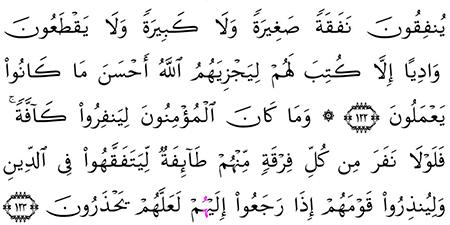 يُنفِقُونَ نَفَقَةً صَغِيرَةً وَلَا كَبِيرَةً وَلَا يَقْطَعُونَ
وَادِيًا إِلَّا كُتِبَ لَهُمْ لِيَجْزِيَهُمُ اللَّهُ أَحْسَنَ مَا كَانُوا۟
يَعْمَلُونَ ﴿١٢٢﴾ ۞ وَمَا كَانَ الْمُؤْمِنُونَ لِيَنفِرُوا۟ كَآفَّةً ۚ
فَلَوْلَا نَفَرَ مِن كُلِّ فِرْقَةٍ مِّنْهُمْ طَآئِفَةٌ لِّيَتَفَقَّهُوا۟ فِى الدِّينِ
وَلِيُنذِرُوا۟ قَوْمَهُمْ إِذَا رَجَعُوا۟ إِلَيْهُمْ لَعَلَّهُمْ يَحْذَرُونَ ﴿١٢٣﴾